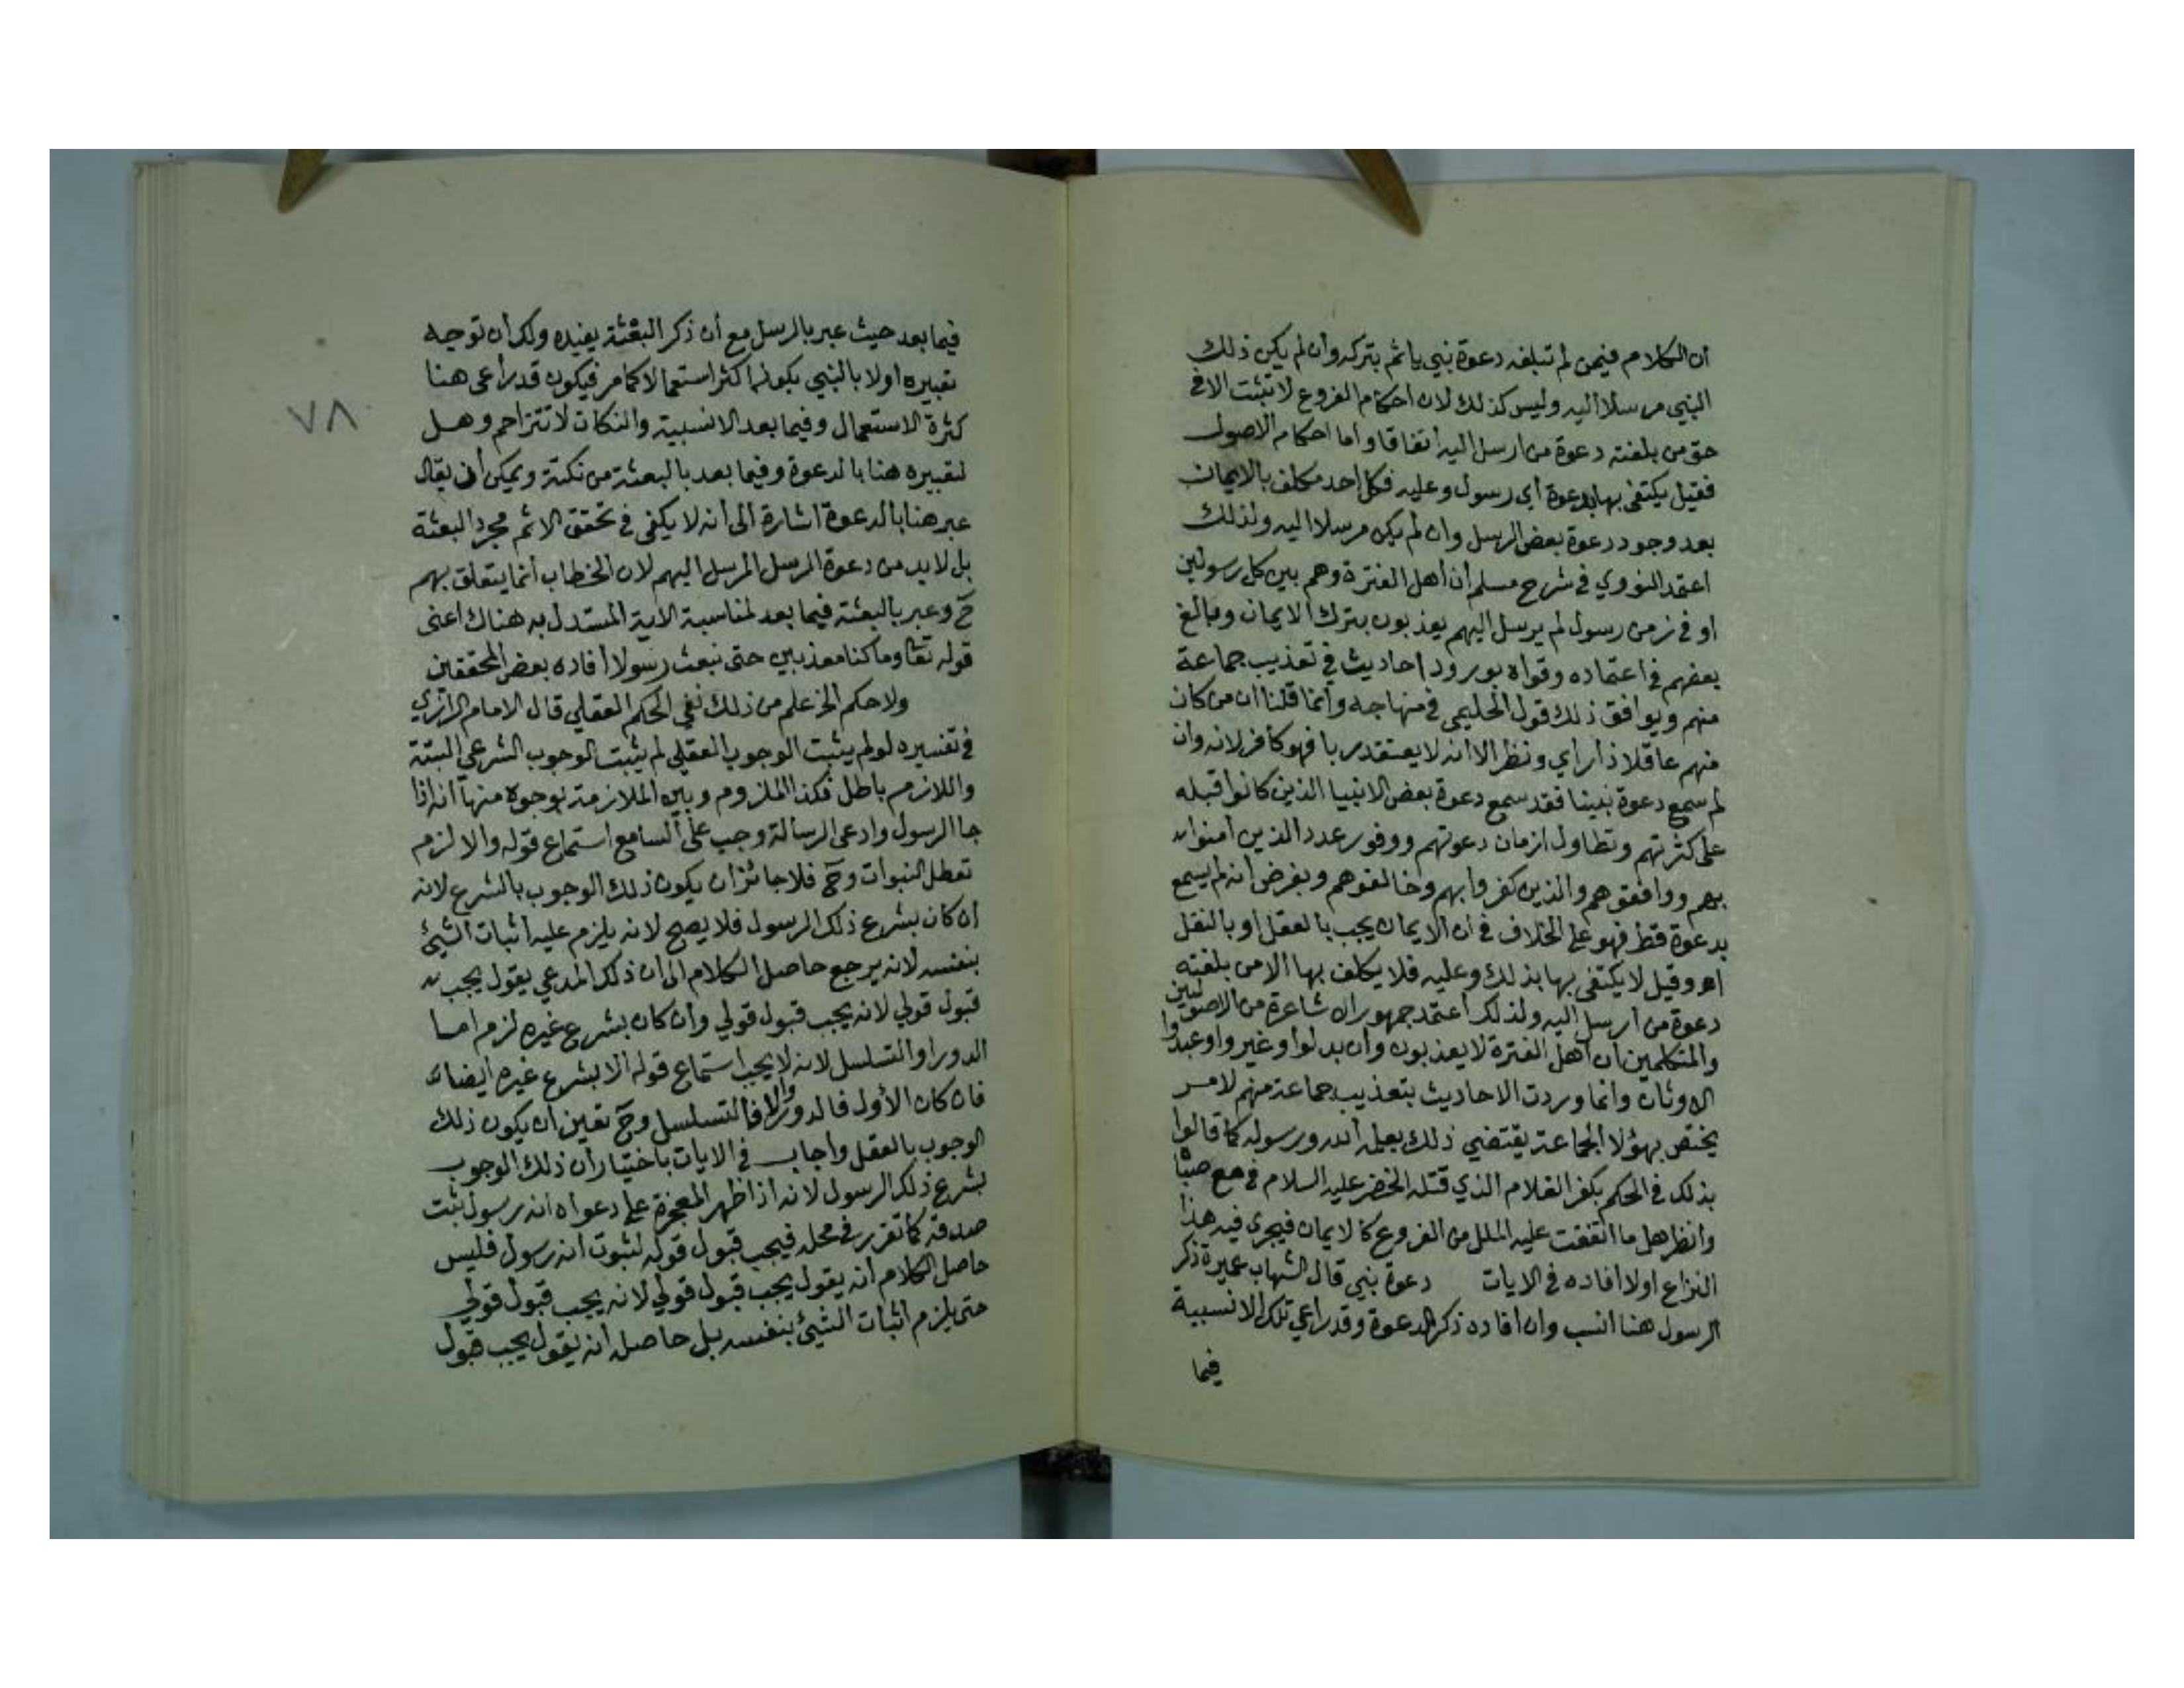 أن الكلام فيمن لم تبلغه دعوة نبي يأثم بتركه وأن لم يكن ذلك
النبي مرسلا اليه وليس كذلك لان احكام الفروع لا تثبت الا في
حق من بلغته دعوة من ارسل اليه اتفاقا واما احكام الاصول
فقيل يكتفى بها بدعوة أي رسول وعليه فكل احد مكلف بالايمان
بعد وجود دعوة بعض الرسل وان لم يكن مرسلا اليه ولذلك
اعتمد النووي في شرح مسلم أن أهل الفترة وهم بين كل رسولين
او في زمن رسول لم يرسل اليهم يعذبون بترك الايمان وبالغ
بعضهم في اعتماده وقواه بورود احاديث في تعذيب جماعة
منهم ويوافق ذلك قول الحليمي في منهاجه وأنما قلنا ان من كان
منهم عاقلا ذا رأي ونظر الا أنه لا يعتقد ربا فهو كافر لانه وان
لم سمع دعوة نبينا فقد سمع دعوة بعض الانبيا الذين كانوا قبله
على كثرتهم وتطاول ازمان دعوتهم ووفور عدد الذين امنوا
بهم ووافقوهم والذين كفروا بهم وخالفوهم وبفرض انه لم يسمع
بدعوة قط فهو على الخلاف في أن الايمان يجب بالعقل او بالنقل
اه وقيل لا يكتفى بها بذلك وعليه فلا يكلف بها الا من بلغته
دعوة من أرسل اليه ولذلك أعتمد جمهور الاشاعرة من الاصوليين
والمتكلمين ان أهل الفترة لا يعذبون وأن بدلوا وغيروا وعبدوا
الاوثان وانما وردت الاحاديث بتعذيب جماعة منهم لامر
يختص بهؤلا الجماعة يقتضي ذلك يعلمه الله ورسوله كما قالوا
بذلك في الحكم بكفر الغلام الذي قتله الخضر عليه السلام في مع صباه
وأنظر هل ما اتفقت عليه الملل من الفروع كالايمان فيجري فيه هذا
النزاع اولا أفاده في الايات دعوة نبي قال الشهاب عميرة ذكر
الرسول هنا انسب وان افاده ذكر الدعوة وقد راعي تلك الانسبية
فيما
فيما بعد حيث عبر بالرسل مع أن ذكر البعثة يفيده ولك أن توجه
تعبيره اولا بالنبي بكونه اكثر استعمالا كما مر فيكون قد راعى هنا
كثرة الاستعمال وفيما بعد الانسبية والنكات لا تتزاحم وهل
لتعبيره هنا بالدعوة وفيما بعد بالبعثة من نكتة ويمكن أن يقال
عبر هنا بالدعوة اشارة الى أنه لا يكفي في تحقق الاثم مجرد البعثة
بل لابد من دعوة الرسل المرسل اليهم لان الخطاب أنما يتعلق بهم
ح وعبر بالبعثة فيما بعد لمناسبة الاية المستدل به هناك اعنى
قوله تعا وما كنا معذبين حتى نبعث رسولا أفاده بعض المحققين
ولا حكم الخ علم من ذلك نفي الحكم العقلي قال الامام الرازي
في تفسيره لو لم يثبت الوجوب العقلي لم يثبت الوجوب الشرعي البتة
واللازم باطل فكذا الملزوم وبين الملازمة بوجوه منها أنه اذا
جا الرسول وادعى الرسالة وجب على السامع استماع قوله والا لزم
تعطل النبوات وح فلا جائز ان يكون ذلك الوجوب بالشرع لانه
أن كان بشرع ذلك الرسول فلا يصح لانه يلزم عليه اثبات الشيئ
بنفسه لانه يرجع حاصل الكلام الى ان ذلك المدعي يقول يجب
قبول قولي لانه يجب قبول قولي وأن كان بشرع غيره لزم اما
الدور او التسلسل لانه لا يجب استماع قوله الا بشرع غيره ايضا
فان كان الأول فالدور والا فالتسلسل وح تعين ان يكون ذلك
الوجوب بالعقل واجاب في الايات باختيار أن ذلك الوجوب
بشرع ذلك الرسول لانه اذا ظهر المعجزة على دعواه انه رسول ثبت
صدقه كما تقرر في محله فيجب قبول قوله لثبوت انه رسول فليس
حاصل الكلام أنه يقول يجب قبول قولي لانه يجب قبول قولي
حتى يلزم اثبات الشيئ بنفسه بل حاصله انه يقول يجب قبول
٧٨